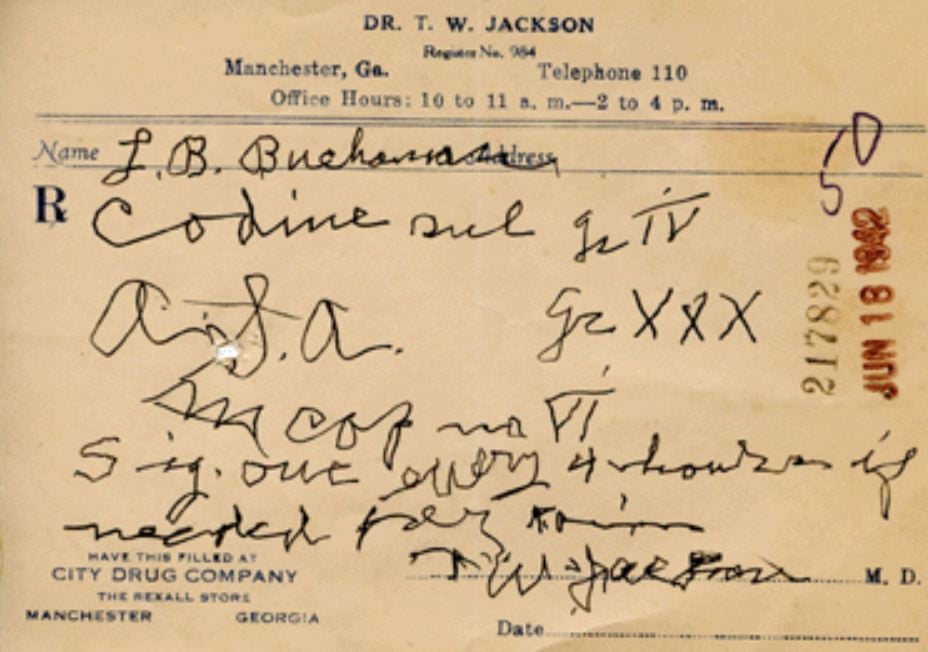 DR. T. W. JACKSON
Register No. 984
Manchester, Ga. Telephone 110
Office Hours: 10 to 11 a. m.—2 to 4 p. m.
Name L. B. Buchanan Address
50
R Codine sul gr IV
A.S.A. gr XXX
M cap no VI
Sig. one every 4 hours if
needed for pain
T. W. Jackson M. D.
HAVE THIS FILLED AT
CITY DRUG COMPANY
THE REXALL STORE
MANCHESTER GEORGIA
Date
217829
JUN 18 1942